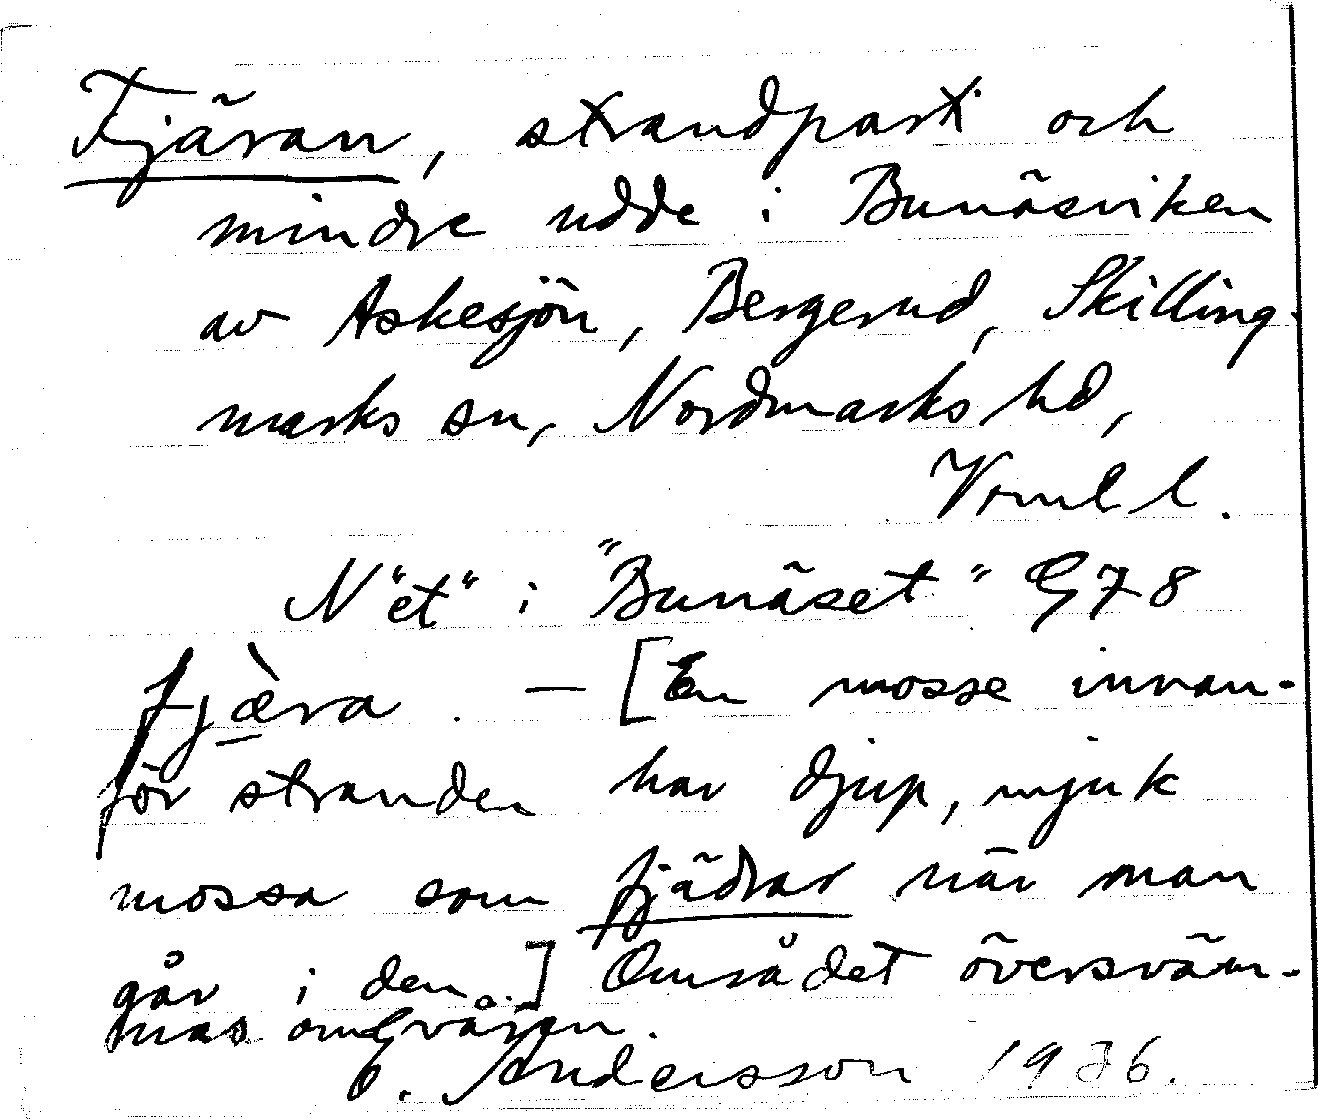 Fjäran, strandparti och
mindre udde i Bunäsviken
av Askesjön, Bergerud, Skilling-
marks sn, Nordmarks hd,
Vrml l.
N "et" i "Bunäset" G78
fjæ̀ra. — [En mosse innan-
för stranden har djup, mjuk
mossa som fjädrar när man
går i den.] Området översväm-
mas om våren.
Andersson 1936.